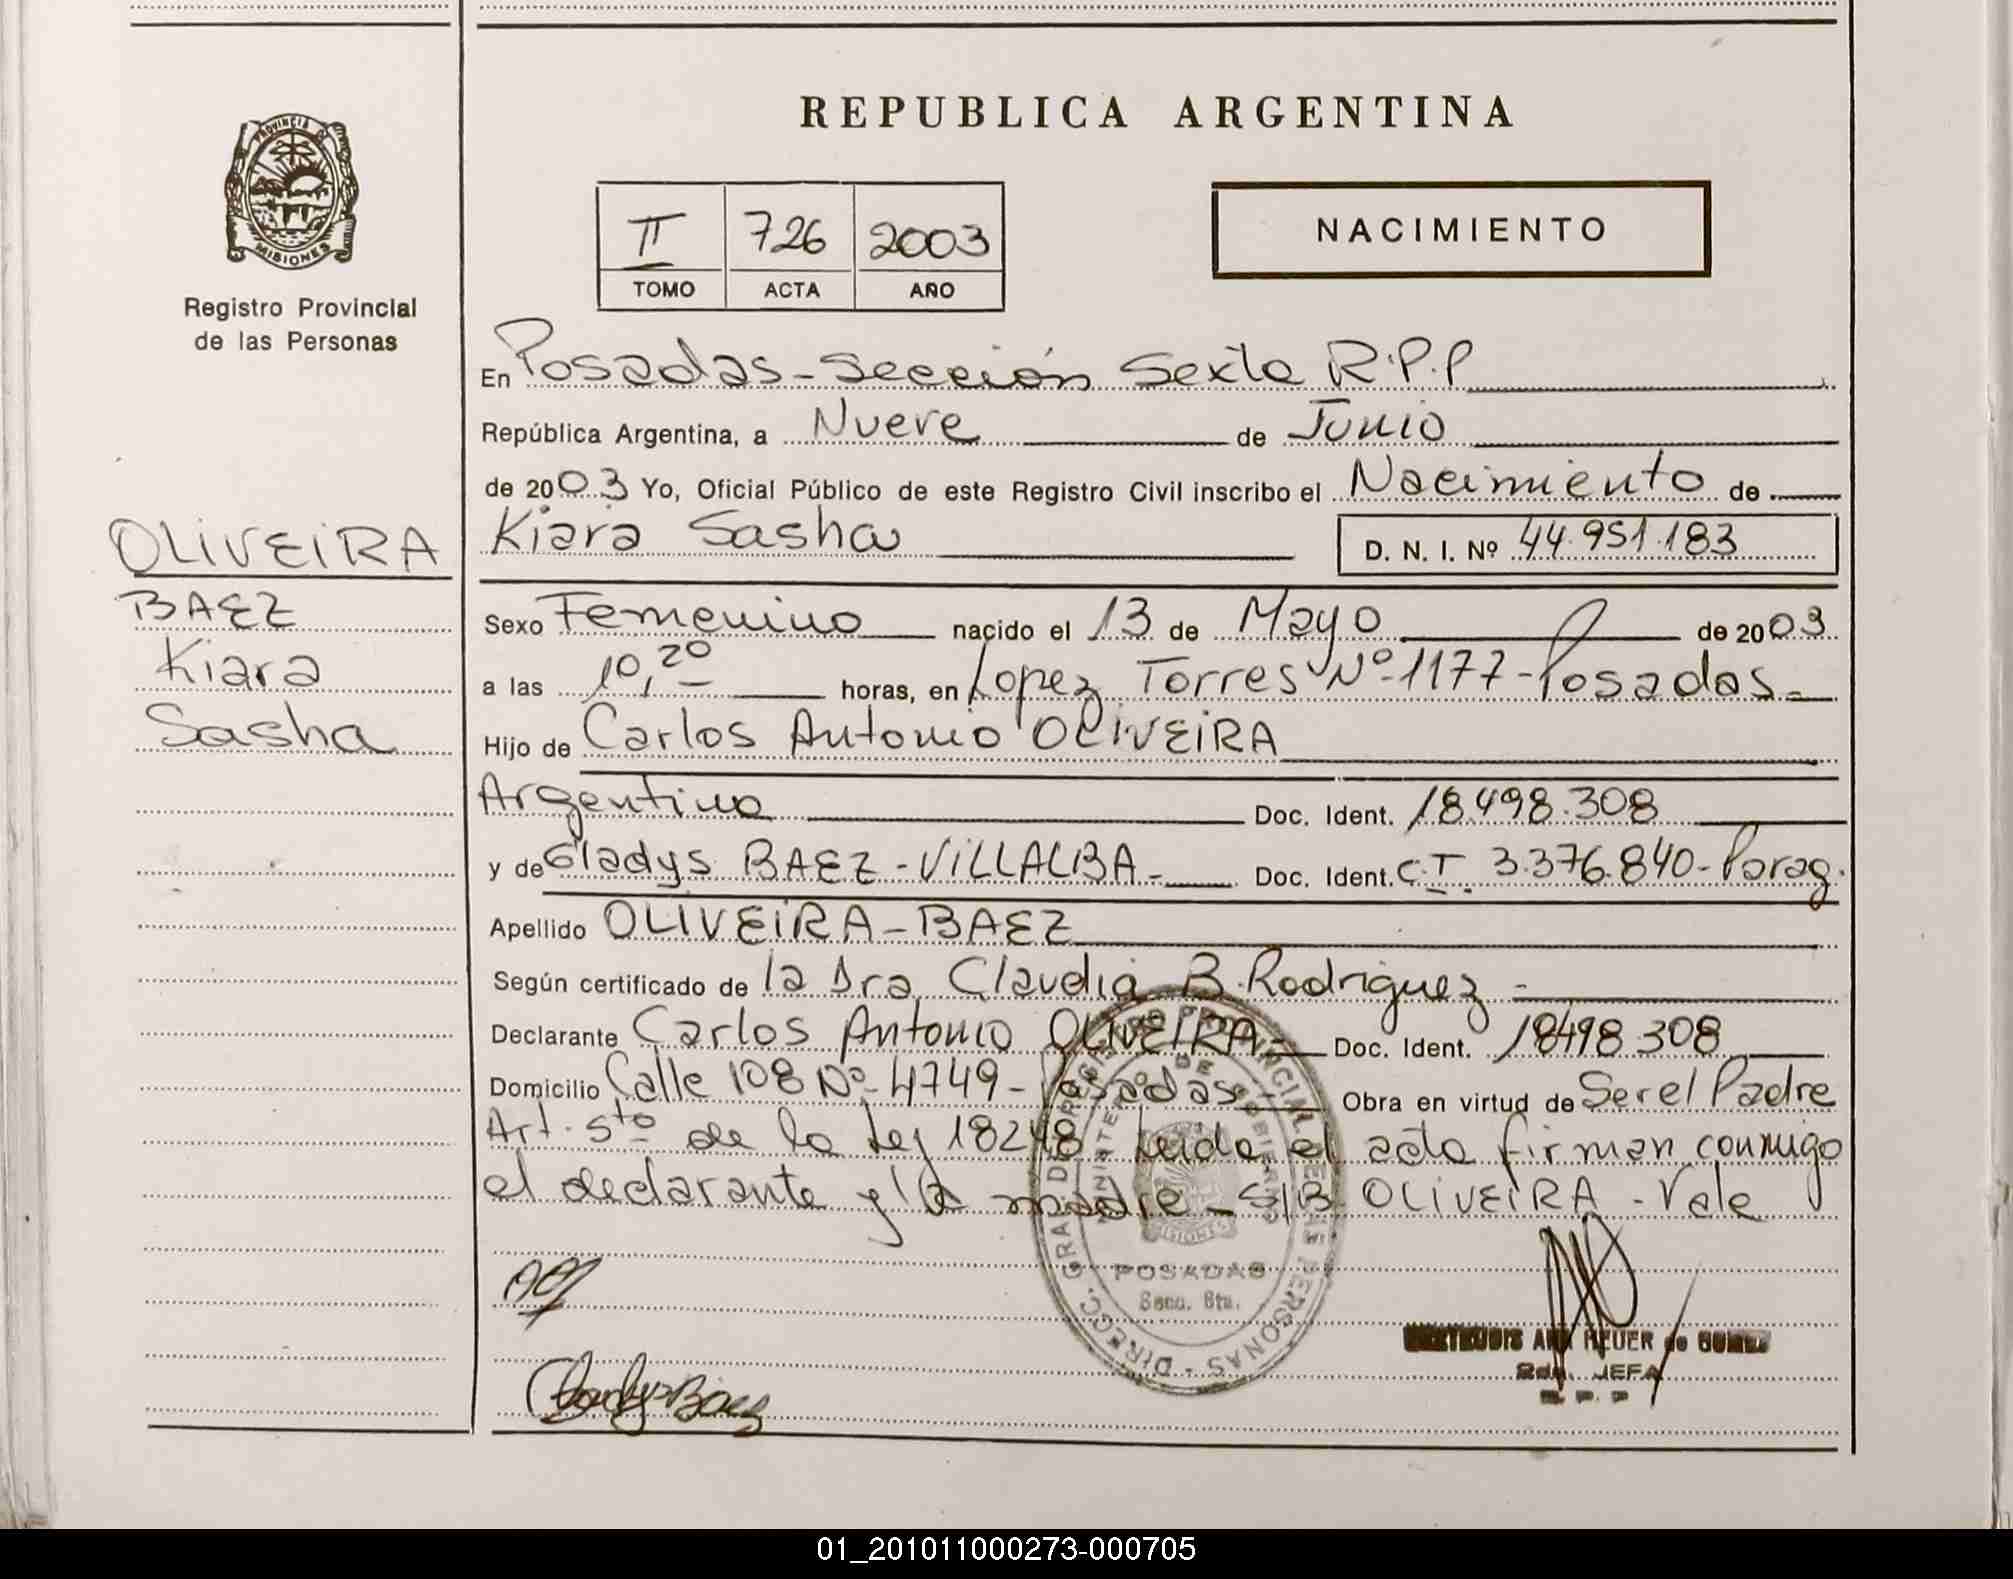 REPUBLICA ARGENTINA
PROVINCIA DE
MISIONES
Registro Provincial
de las Personas
II 726 2003
TOMO ACTA AÑO
NACIMIENTO
En Posadas - Sección Sexta R.P.P
República Argentina, a Nueve de Junio
de 2003 Yo, Oficial Público de este Registro Civil inscribo el Nacimiento de
Kiara Sasha D. N. I. Nº 44.951.183
OLIVEIRA
BAEZ
Kiara
Sasha
Sexo Femenino nacido el 13 de Mayo de 2003
a las 10,20 horas, en Lopez Torres Nº 1177 - Posadas -
Hijo de Carlos Antonio OLIVEIRA
Argentino Doc. Ident. 18.498.308
y de Gladys BAEZ - VILLALBA - Doc. Ident. C.I. 3.376.840 - Parag.
Apellido OLIVEIRA - BAEZ
Según certificado de la Dra Claudia B. Rodriguez -
Declarante Carlos Antonio OLIVEIRA - Doc. Ident. 18498.308
Domicilio Calle 108 Nº 4749 - Posadas - Obra en virtud de Ser el Padre
Art. 5to de la Ley 18248 Leida el acta firman conmigo
el declarante y la madre - S/B OLIVEIRA - Vale
POSADAS
Secc. 6ta.
Gladys Baez
ANA REUER de GOMEZ
2da. JEFA
R. P. P
01_201011000273-000705